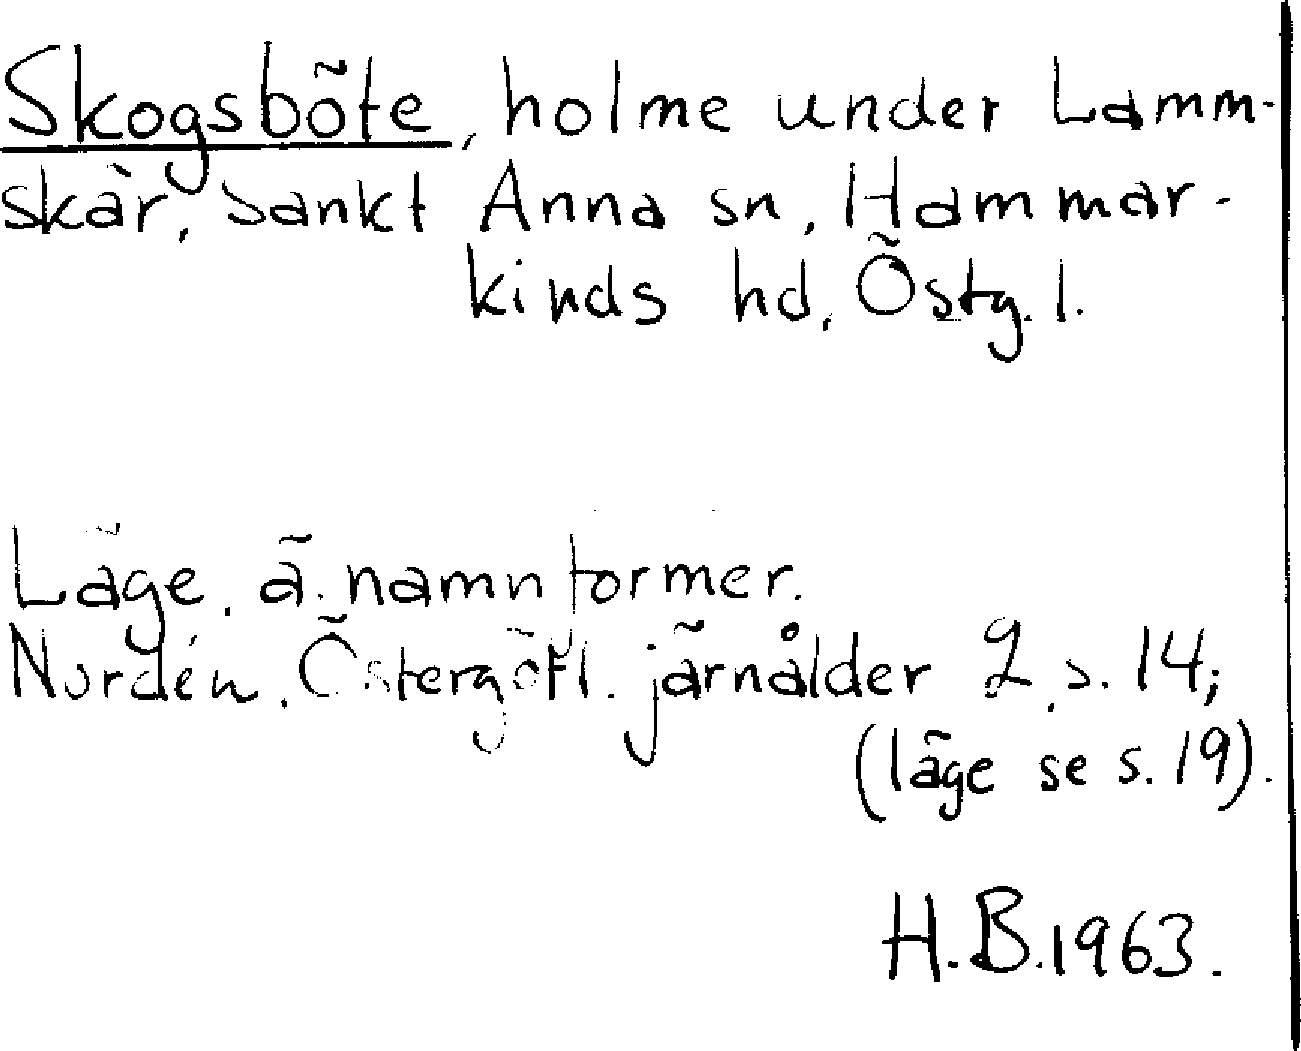 Skogsböte, holme under Lamm-
skär, Sankt Anna sn, Hammar-
kinds hd, Östg. l.
Läge, ä. namnformer.
Nordén, Östergötl. järnålder 2, s. 14;
(läge se s. 19).
H.B. 1963.